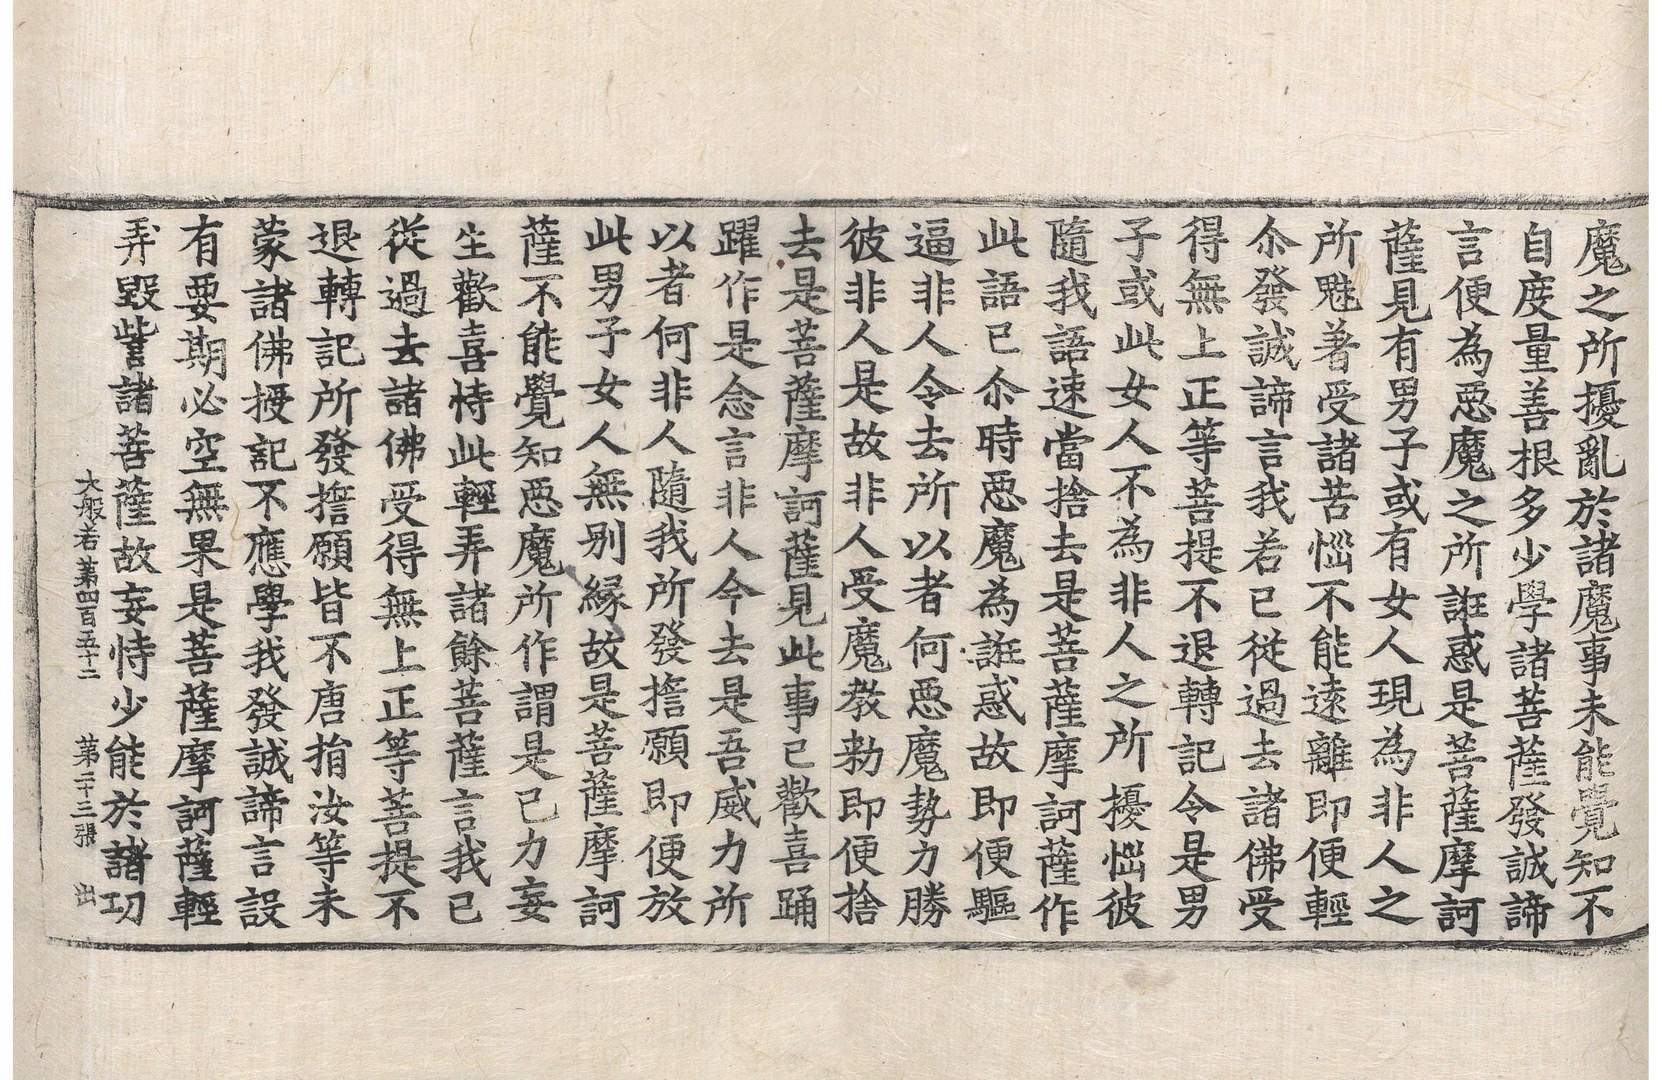 魔之所擾亂於諸魔事未能覺知不
自度量善根多少學諸菩薩發誠諦
言便為惡魔之所誑惑是菩薩摩訶
薩見有男子或有女人現為非人之
所魅著受諸苦惱不能遠離即便輕
尒發誠諦言我若已從過去諸佛受
得無上正等菩提不退轉記令是男
子或此女人不為非人之所擾惱彼
隨我語速當捨去是菩薩摩訶薩作
此語已尒時惡魔為誑惑故即便驅
逼非人令去所以者何惡魔勢力勝
彼非人是故非人受魔教勑即便捨
去是菩薩摩訶薩見此事已歡喜踊
躍作是念言非人今去是吾威力所
以者何非人隨我所發擔願即便放
此男子女人無別緣故是菩薩摩訶
薩不能覺知惡魔所作謂是已力妄
生歡喜恃此輕弄諸餘菩薩言我已
從過去諸佛受得無上正等菩提不
退轉記所發擔願皆不唐捐汝等未
蒙諸佛授記不應學我發誠諦言設
有要期必空無果是菩薩摩訶薩輕
弄毀訾諸菩薩故妄恃少能於諸功
大般若第四百五十二 第二十三張 出